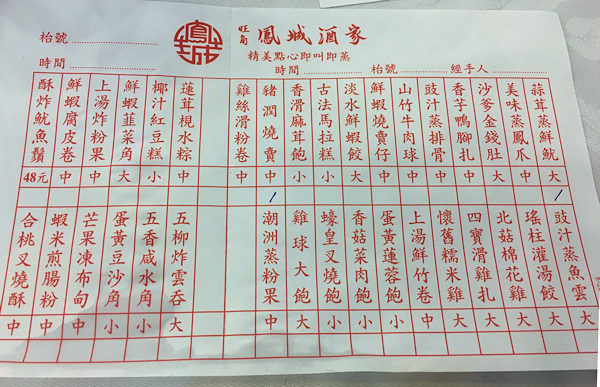 旺角 鳳城酒家
精美點心即叫即蒸
時間
枱號
經手人
枱號
時間
蒜茸蒸鮮魷
大
美味蒸鳳爪
中
沙爹金錢肚
大
香芋鴨腳扎
中
豉汁蒸排骨
中
山竹牛肉球
中
鮮蝦燒賣仔
中
淡水鮮蝦餃
大
古法馬拉糕
小
香滑麻茸飽
小
豬潤燒賣
中
雞絲滑粉卷
中
蓮茸梘水粽
中
椰汁紅豆糕
小
鮮蝦韮菜角
大
上湯炸粉果
中
鮮蝦腐皮卷
中
酥炸魷魚鬚
48元
豉汁蒸魚雲
大
瑤柱灌湯餃
大
北菇棉花雞
大
四寶滑雞扎
大
懷舊糯米雞
大
上湯鮮竹卷
中
蛋黃蓮蓉飽
小
香菇菜肉飽
小
蠔皇叉燒飽
小
雞球大飽
大
潮洲蒸粉果
中
五柳炸雲吞
大
五香咸水角
小
蛋黃豆沙角
小
芒果凍布甸
中
蝦米煎腸粉
中
合桃叉燒酥
中